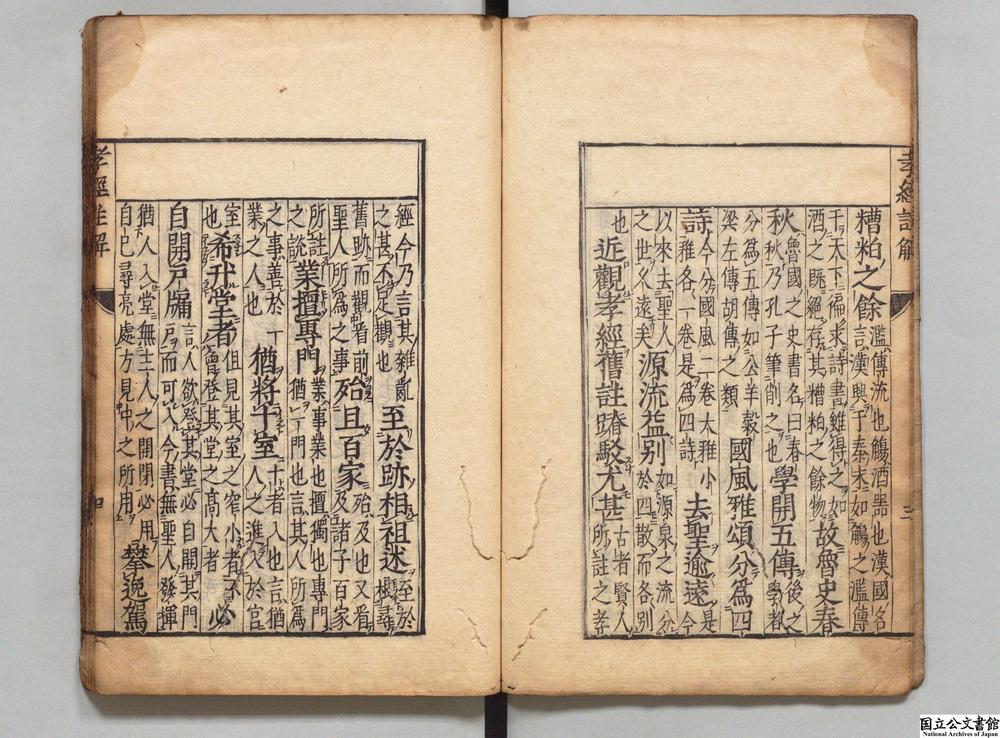 孝經註解
糟粕之餘 濫傳流也觴酒器也漢國名
言漢興于秦末如觴之濫傳
于天下徧求詩書雖得之
酒之既絕存其糟粕之餘物 故魯史春
秋 魯國之史書名曰春
秋乃孔子筆削之也 學開五傳 後之
學者
分為五傳如公羊穀
梁左傳胡傳之類 國風雅頌分為四
詩 今分國風二卷大雅小
雅各一卷是為四詩 去聖逾遠 是
今
以來去聖人
之世久遠矣 源流益別 如源泉之流分
於四散而各別
也 近觀孝經舊註踳駁尤甚 古者賢人
所註之孝
經今乃言其雜亂
之甚不足觀也 至於跡相祖述 至於
尋
舊跡而觀看前
聖人所為之事 殆且百家 殆及也又看
及諸子百家
所註
之說 業擅專門 業事業也擅獨也專門
猶一門也言其人所為
之事善於一
業之人也 猶將十室 十者入也言猶
人之進入於官
室
也 希升堂者 但見其室之窄小者不
曾登其堂之高大者 必
自開戶牖 言人欲登其堂必自開其門
戶而可入今書無聖人發揮
猶人入堂無主人之開閉必用
自己尋亮處方見中之所用 攀逸駕
孝經註解
国立公文書館
National Archives of Japan